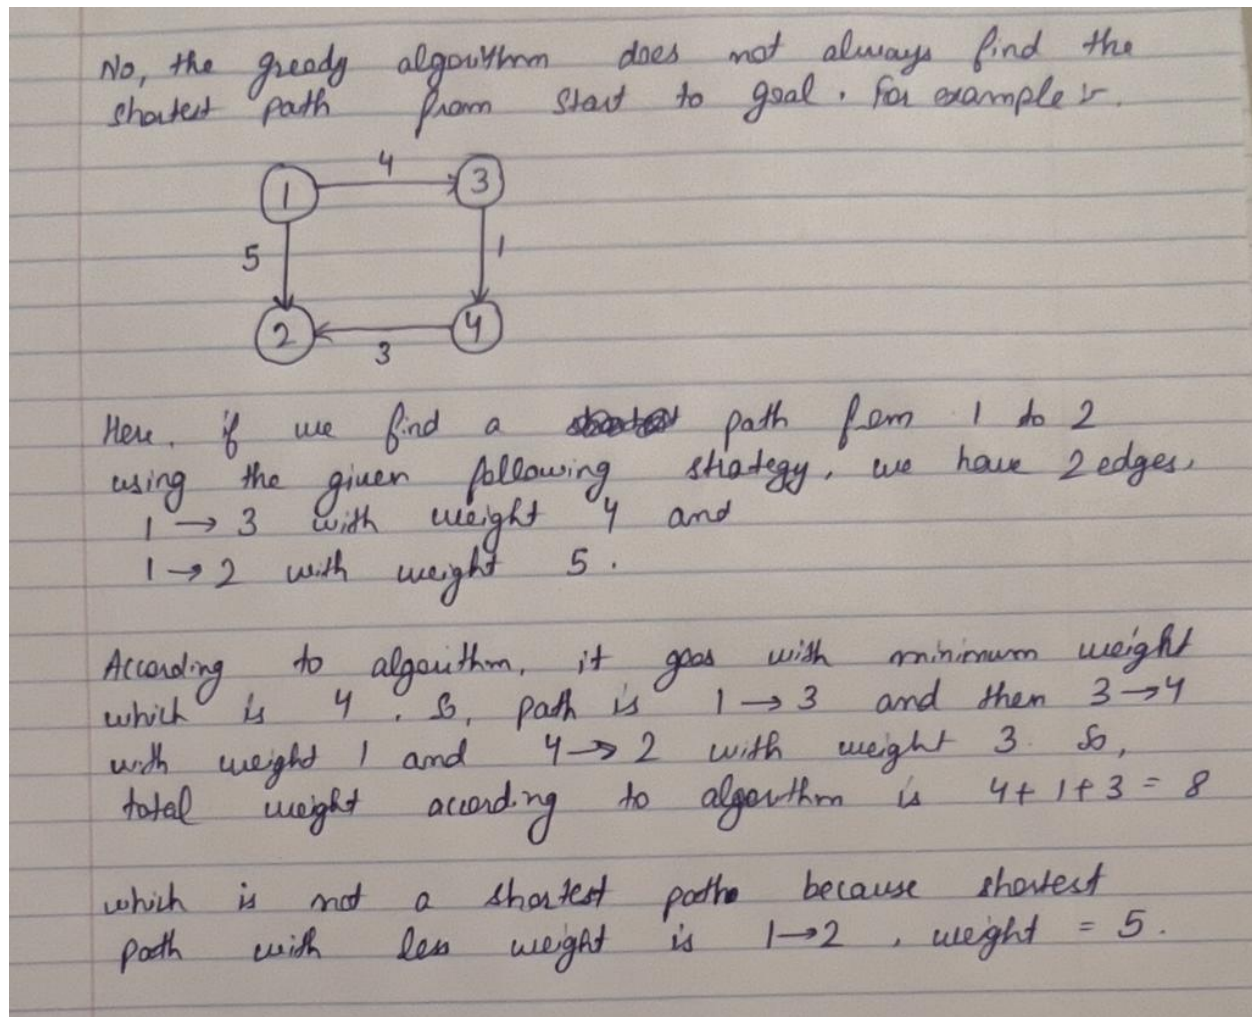 No, the greedy algorithm does not always find the
shortest path from start to goal. For example :-
4
1 3
5 1
2 4
3
Here, if we find a path from 1 to 2
using the given following strategy, we have 2 edges,
1 → 3 with weight 4 and
1 → 2 with weight 5.
According to algorithm, it goes with minimum weight
which is 4. So, path is 1 → 3 and then 3 → 4
with weight 1 and 4 → 2 with weight 3. So,
total weight according to algorithm is 4 + 1 + 3 = 8
which is not a shortest path because shortest
path with less weight is 1 → 2, weight = 5.